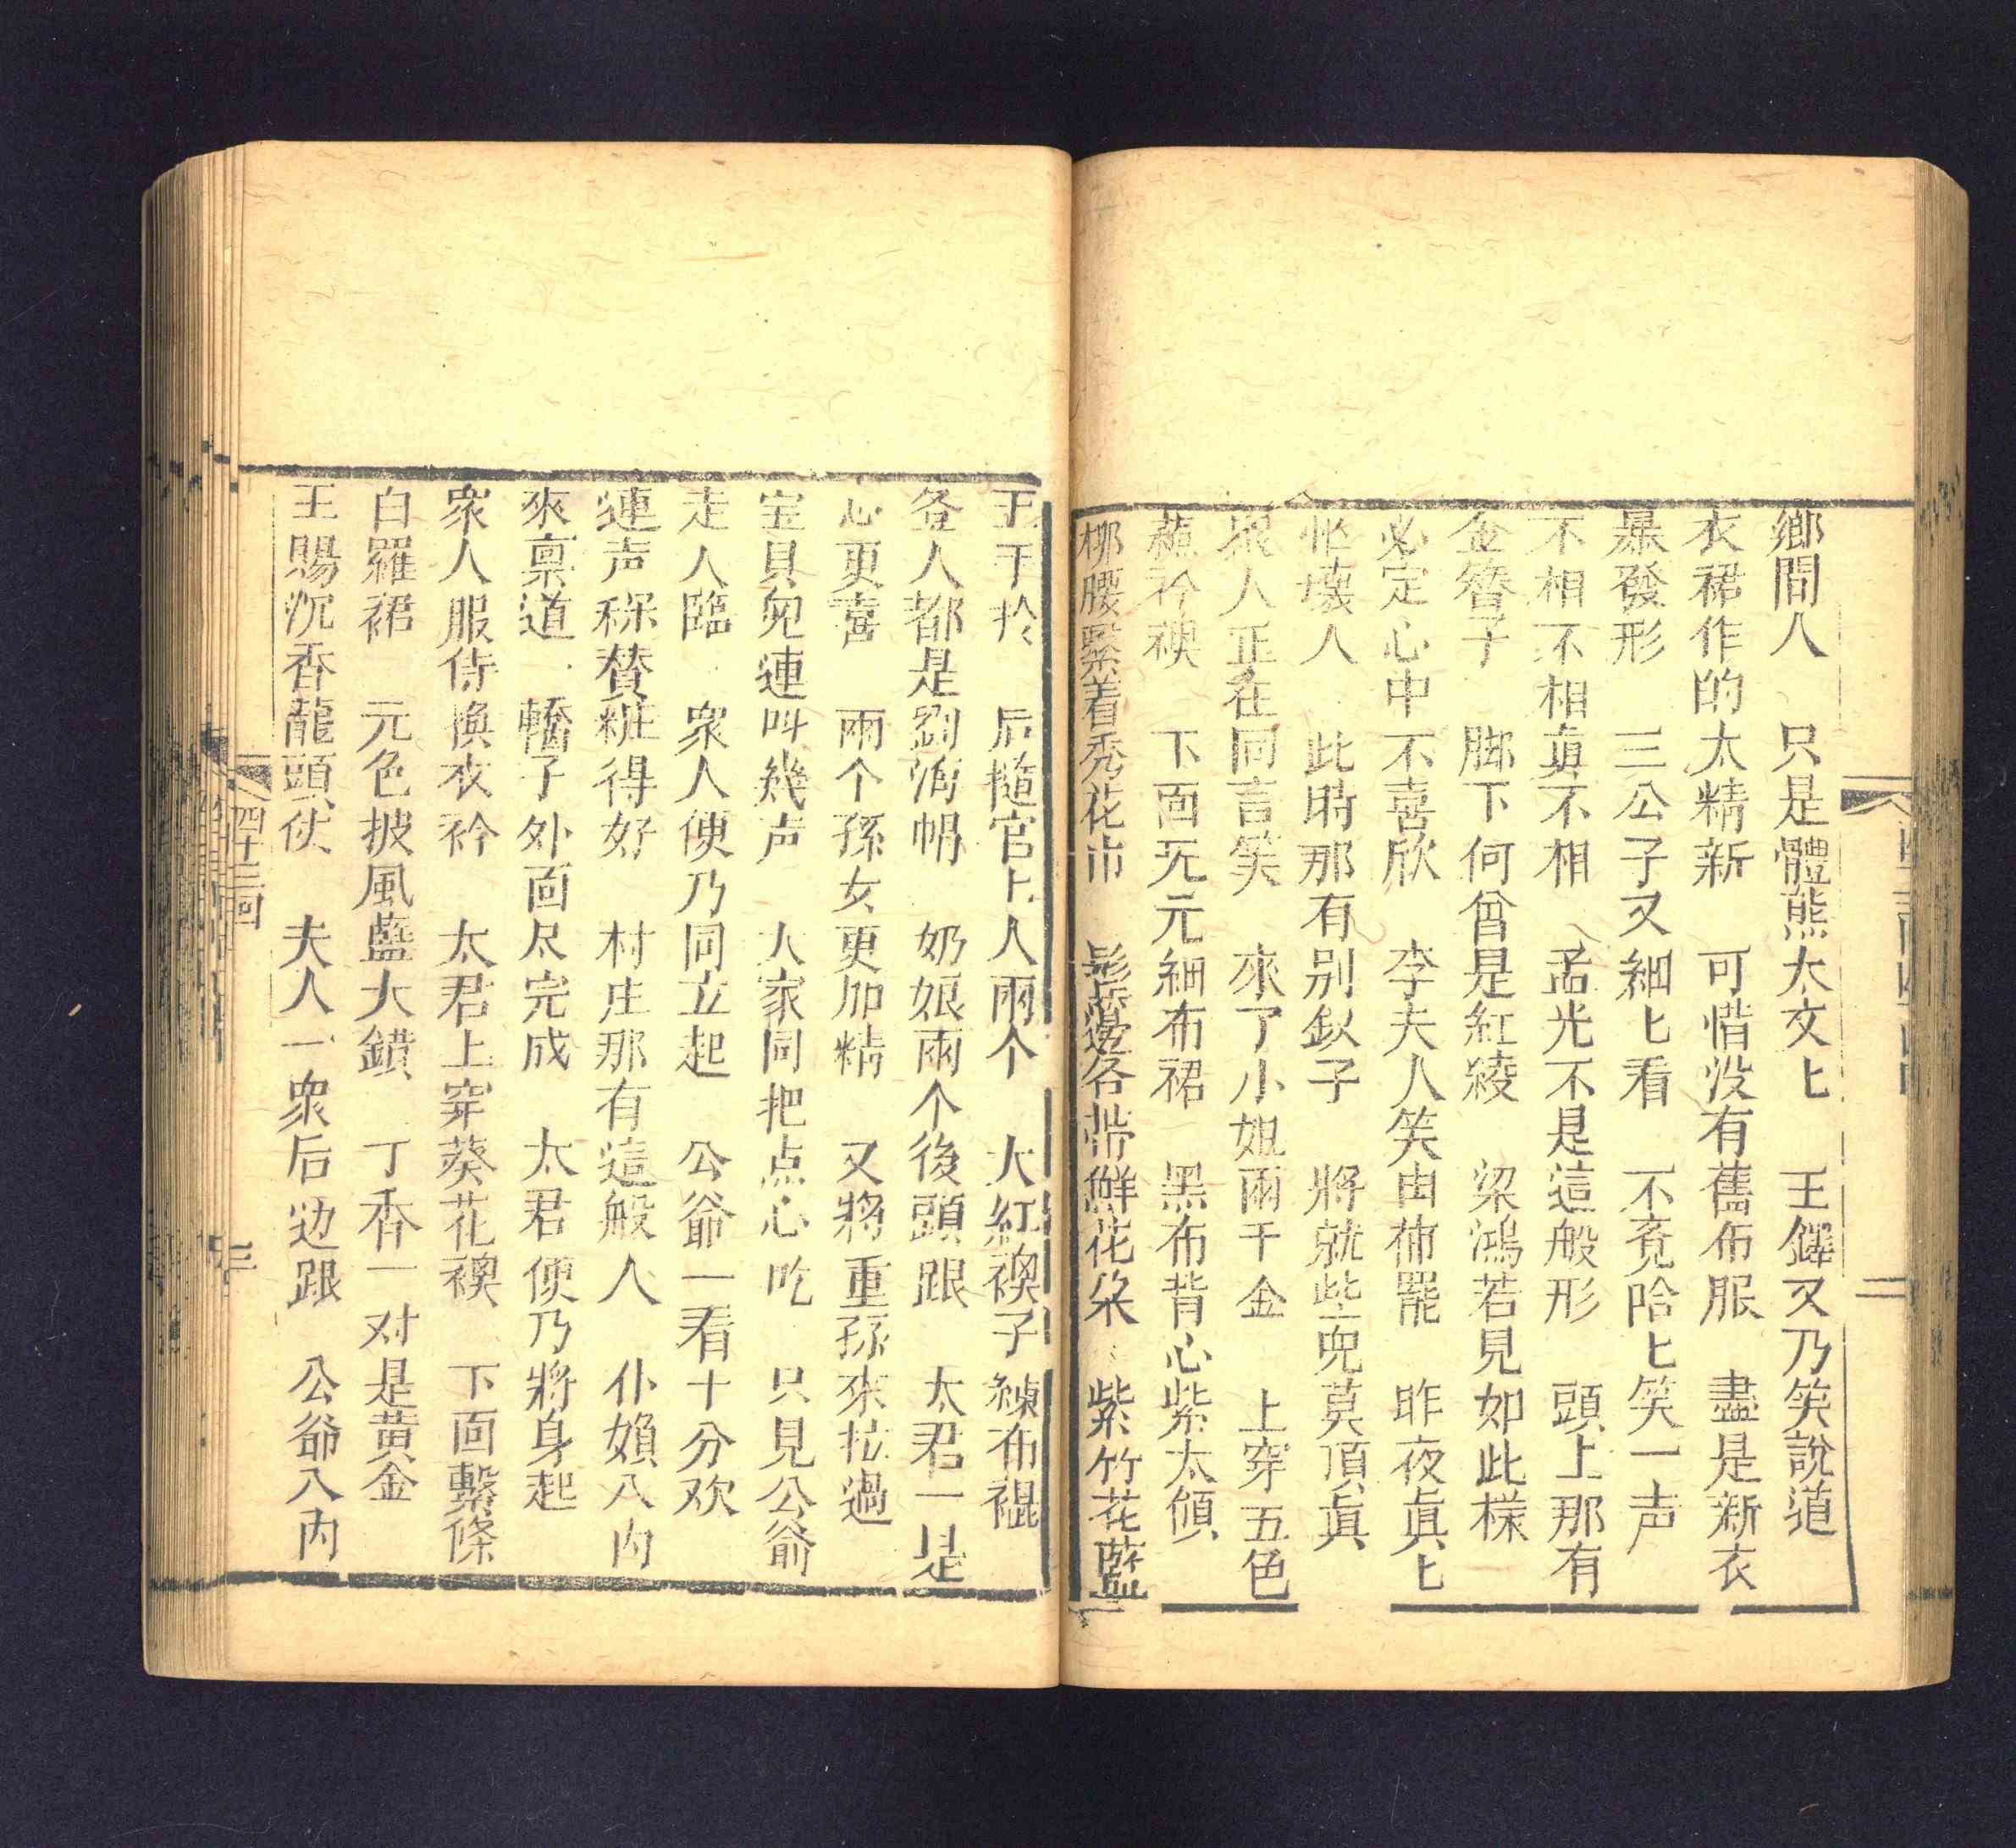 鄉間人　只是體熊太文匕　王鐸又乃笑說道
衣裙作的太精新　可惜没有舊布服　盡是新衣
暴發形　三公子又細匕看　不覓哈匕笑一声
不相不相真不相　孟光不是這般形　頭上那有
金簪子　脚下何曾是紅綾　梁鴻若見如此樣
必定心中不喜欣　李夫人笑由布罷　昨夜眞匕
怄壞人　此時那有别釵子　將就些兒莫頂眞
衆人正在同言笑　來了小姐兩千金　上穿五色
衿襖　下面无元細布裙　黑布背心紫太傾
柳腰緊着秃花巾　髩邊各帶鮮花朵　紫竹花藍
玉手拎　后隨官上人兩个　大紅襖子練布裩
各人都是劉海帽　奶娘兩个後頭跟　太君一是
心更喜　兩个孫女更加精　又將重孫來拉過
宝貝兒連叫幾声　大家同把点心吃　只見公爺
走人臨　衆人便乃同立起　公爺一看十分欢
連声稱贊粧得好　村庄那有這般人　仆媍入内
來禀道　轎子外面尽完成　太君便乃將身起
衆人服侍換衣衿　太君上穿葵花襖　下面繫條
白羅裙　元色披風藍大鑲　丁香一对是黄金
王賜沉香龍頭仗　夫人一衆后边跟　公爺入内
四十三回
三
二